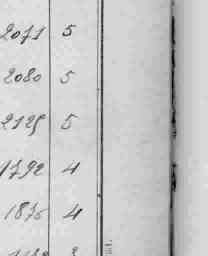 2071 5
2080 5
2125 5
1792 4
1875 4